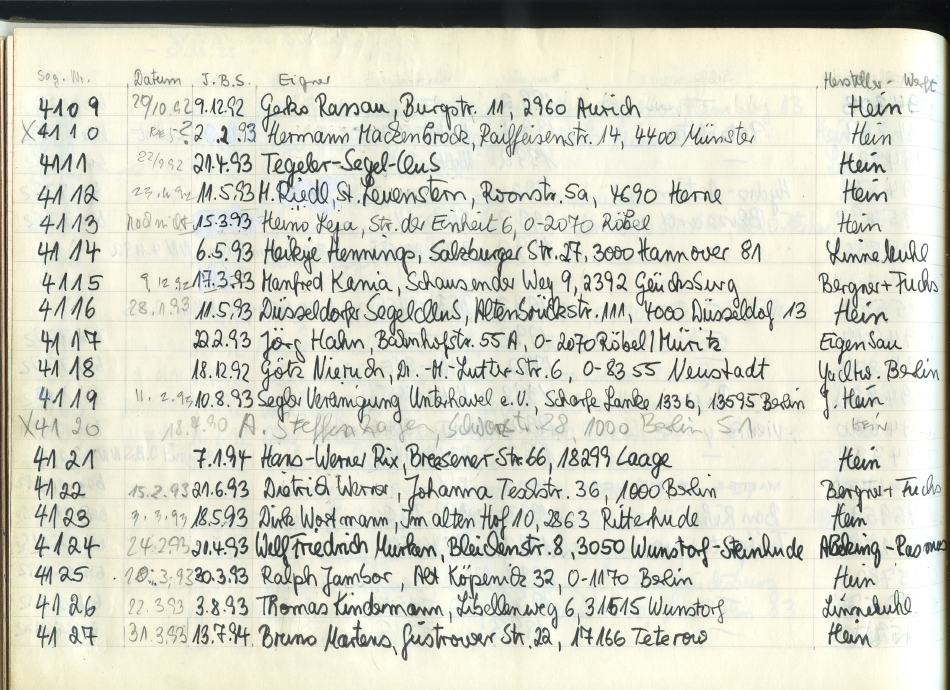 Seg. Nr. Datum J.B.S. Eigner Hersteller - Werft
4109 29/10.92 9.12.92 Gerko Rassau, Burgstr. 11, 2960 Aurich Hein
X4110 2.2.93 Hermann Mackenbrock, Raiffeisenstr. 14, 4400 Münster Hein
4111 22/9.92 21.4.93 Tegeler-Segel-Club Hein
4112 11.5.93 H. Riedl, St. Leuenstern, Roonstr. 5a, 4690 Herne Hein
4113 15.3.93 Heino Leja, Str. der Einheit 6, O-2070 Röbel Hein
4114 6.5.93 Heikeje Hennings, Salzburger Str. 27, 3000 Hannover 81 Linnekuhl
4115 9.12.92 17.3.93 Manfred Kania, Schausender Weg 9, 2392 Glücksburg Bergner+Fuchs
4116 28.1.93 11.5.93 Düsseldorfer Segelclub, Altenbrückstr. 111, 4000 Düsseldof 13 Hein
4117 22.2.93 Jörg Hahn, Bahnhofstr. 55A, O-2070 Röbel/Müritz Eigenbau
4118 18.12.92 Götz Nierich, Dr.-M.-Luther Str. 6, O-8355 Neustadt Yachtw. Berlin
4119 11.2.93 10.8.93 Segler Vereinigung Unterhavel e.V., Scharfe Lanke 1336, 13595 Berlin J. Hein
X4120 18.4.90 A. Steffenhagen, 28, 1000 Berlin 51 Hein
4121 7.1.94 Hans-Werner Rix, Breesener Str. 66, 18299 Laage Hein
4122 15.2.93 21.6.93 Dietrich Werner, Johanna Teschstr. 36, 1000 Berlin Bergner+Fuchs
4123 3.3.93 18.5.93 Dirk Wortmann, Im alten Hof 10, 2863 Ritterhude Hein
4124 24.2.93 21.4.93 Welf Friedrich Murken, Bleichenstr. 8, 3050 Wunstorf-Steinhude Abeking-Rasmus
4125 10.3.93 30.3.93 Ralph Jambor, Alt Köpenick 32, O-1170 Berlin Hein
4126 22.3.93 3.8.93 Thomas Kindermann, Libellenweg 6, 31515 Wunstorf Linnekuhl
4127 31.3.93 13.7.94 Bruno Martens, Güstrower Str. 22, 17166 Teterow Hein